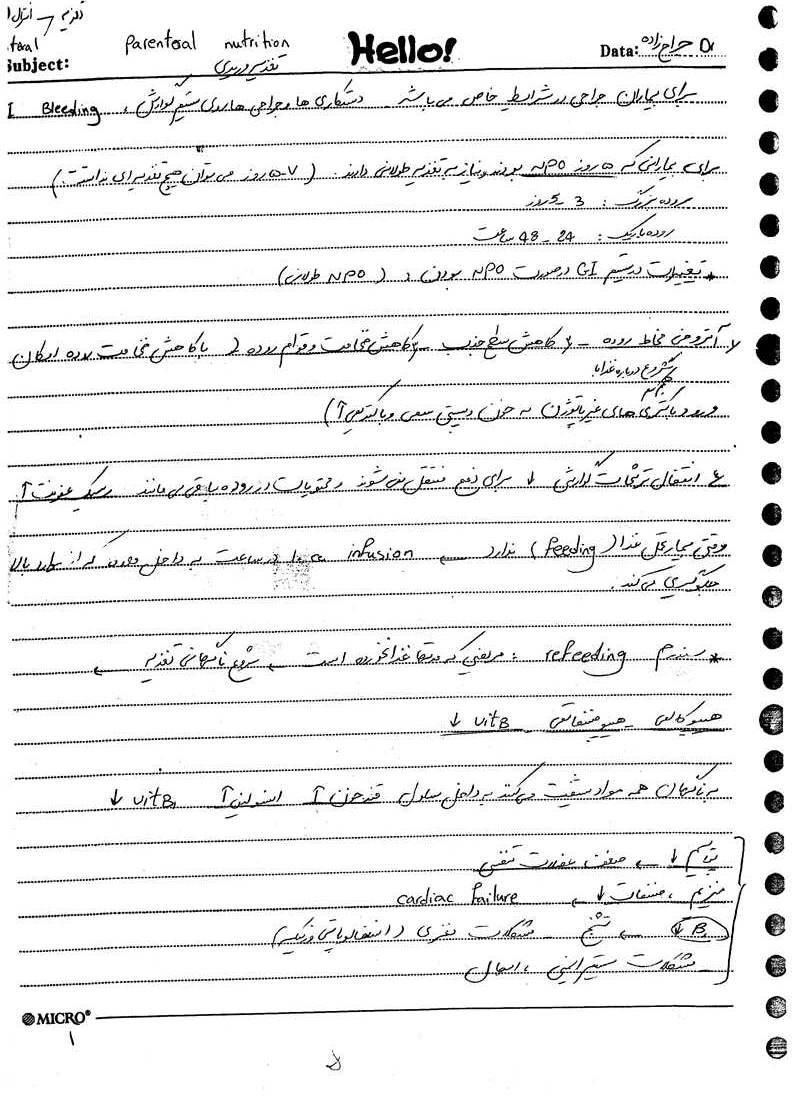 تغذیه → انترال
parenteral nutrition Hello! Data: حراج زاده Dr
teral
Subject: تغذیه وریدی
برای بیماران جراحی در شرایط خاص می باشد دستکاری ها و جراحی های سیستم گوارش ، Bleeding I
برای بیمارانی که ۵ روز NPO بودند و نیاز به تغذیه طولانی دارند. ( ۷-۵ روز می توان هیچ تغذیه ای نداشت )
روده بزرگ : 3 روز
روده باریک : 24 - 48 ساعت
* تغییرات در سیستم GI در صورت NPO بودن : ( NPO طولانی )
آتروفی مخاط روده - کاهش سطح جذب - کاهش ضخامت و قوام روده ( با کاهش ضخامت روده امکان
شروع دوباره غذا با
ورود باکتری های غیر پاتوژن به خون و سپتی سمی و باکتریمی ↑ )
انتقال ترشحات گوارشی ↓ برای دفع منتقل نمی شوند و محتویات در روده باقی می مانند ریسک عفونت ↑
وقتی بیمار تحمل غذا ( feeding ) ندارد ← infusion 10 cc در ساعت به داخل معده که از موارد بالا
جلوگیری می کند .
* سندرم refeeding : مریضی که مدتها غذا نخورده است ← شروع ناگهانی تغذیه ←
هیپوکالمی - هیپوفسفاتمی - vit B ↓
به ناگهان همه مواد شیفت می کند به داخل سلول قند خون ↑ انسولین ↑ vit B₁ ↓
پتاسیم ↓ ← ضعف عضلات تنفسی
منیزیم ، فسفات ↓ ← cardiac failure
B₁ ↓ ← تشنج - مشکلات مغزی ( انسفالوپاتی ورنیکه )
مشکلات گوارشی ، اسهال
MICRO®
۱